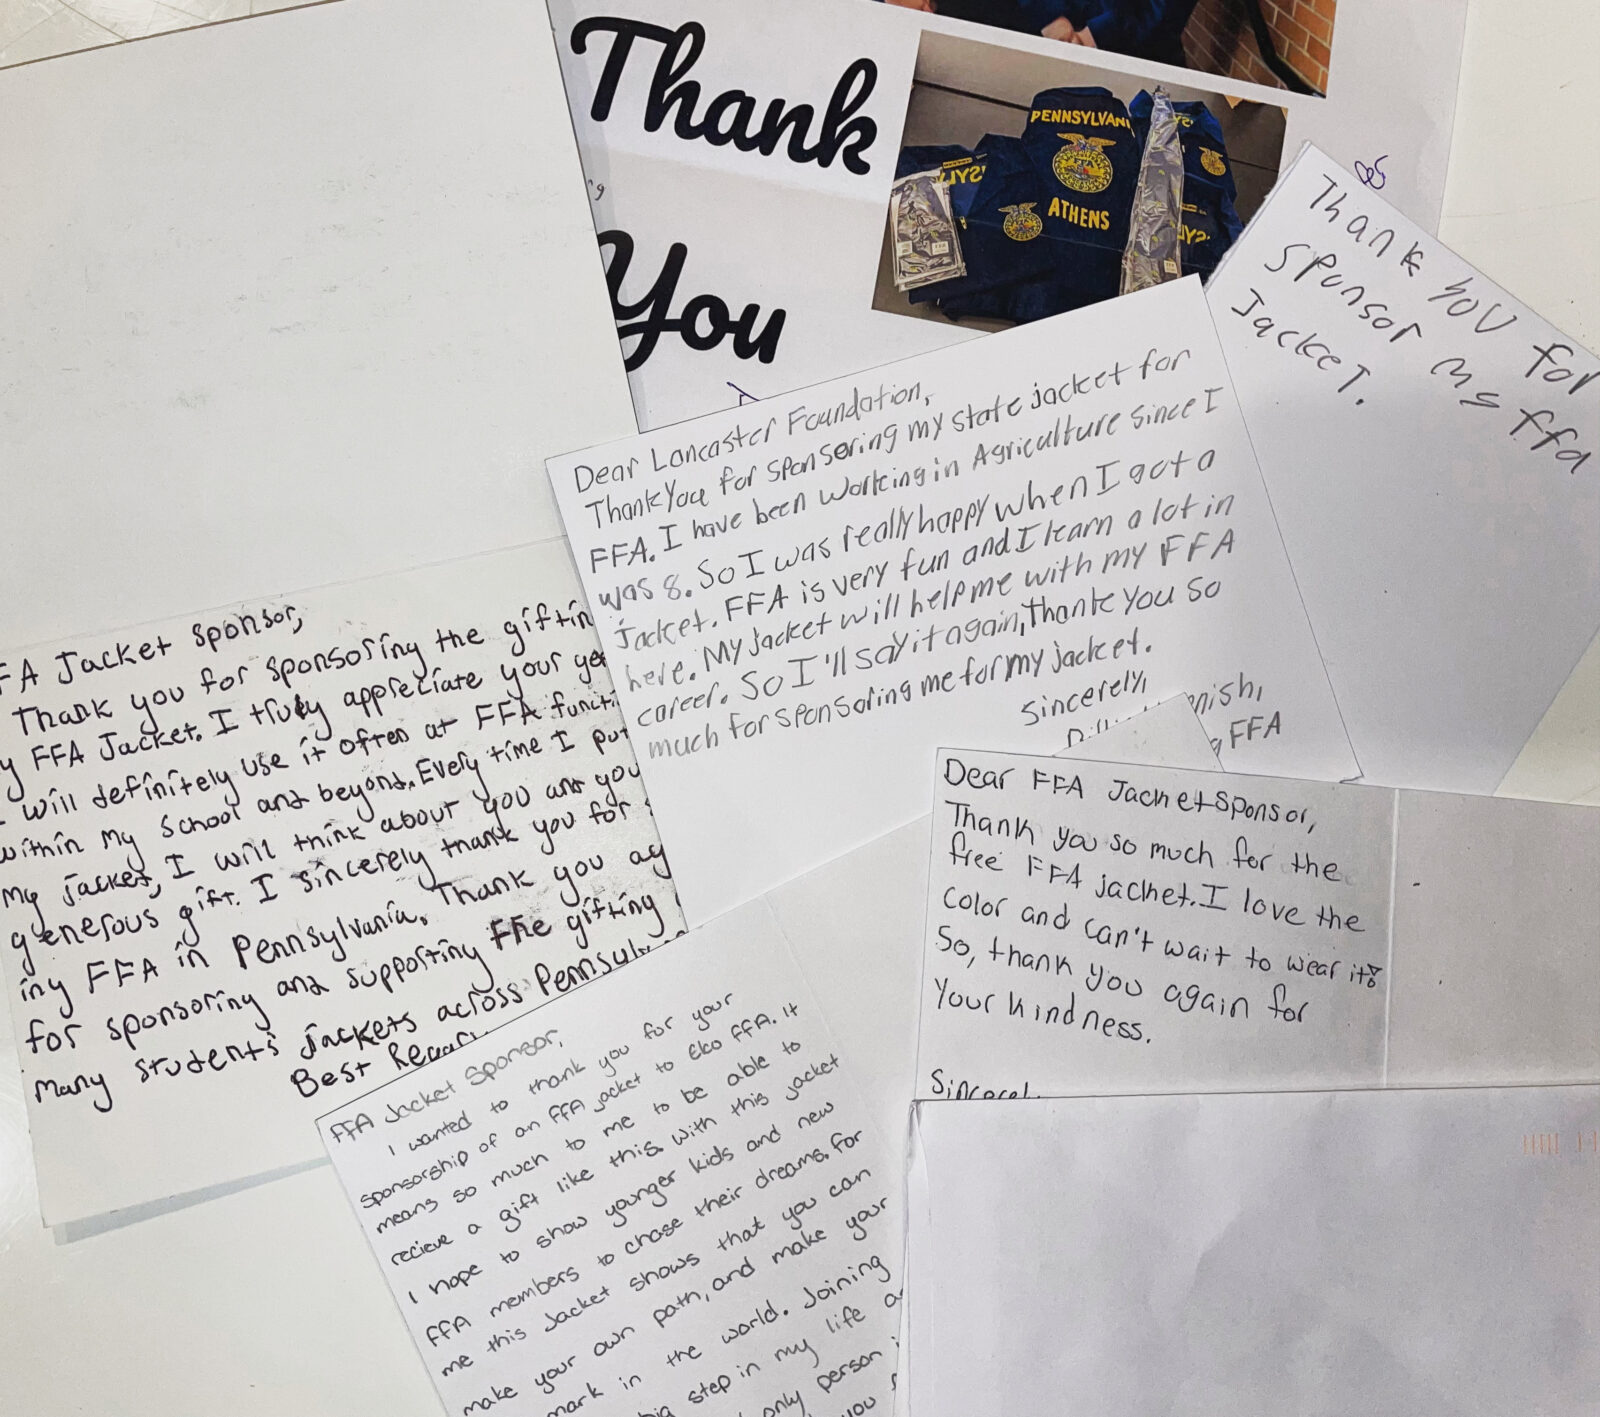 Thank
You
PENNSYLVANI
ATHENS
Thank you for
sponsor my ffa
Jacket.
Dear Lancaster Foundation,
Thank you for sponsering my state jacket for
FFA. I have been working in Agriculture since I
was 8. So I was really happy when I got a
jacket. FFA is very fun and I learn a lot in
here. My jacket will help me with my FFA
career. So I'll say it again, Thank you so
much for sponsoring me for my jacket.
Sincerely,
FFA
FA Jacket sponsor,
Thank you for sponsoring the giftin
y FFA Jacket. I truly appreciate your ge
I will definitely use it often at FFA functi
within my school and beyond. Every time I put
my jacket, I will think about you and you
generous gift. I sincerely thank you for
ing FFA in Pennsylvania. Thank you ag
for sponsoring and supporting the gifting
many student's jackets across Pennsylv
Best Regar
Dear FFA Jacket Sponsor,
Thank you so much for the
free FFA jacket. I love the
color and can't wait to wear it!
So, thank you again for
your kindness.
Sincerel
FFA Jacket Sponsor,
I wanted to thank you for your
sponsorship of an FFA jacket to Elco FFA. It
means so much to me to be able to
recieve a gift like this. With this jacket
I hope to show younger kids and new
FFA members to chase their dreams. For
me this jacket shows that you can
make your own path, and make your
mark in the world. Joining
big step in my life a
only person i
you